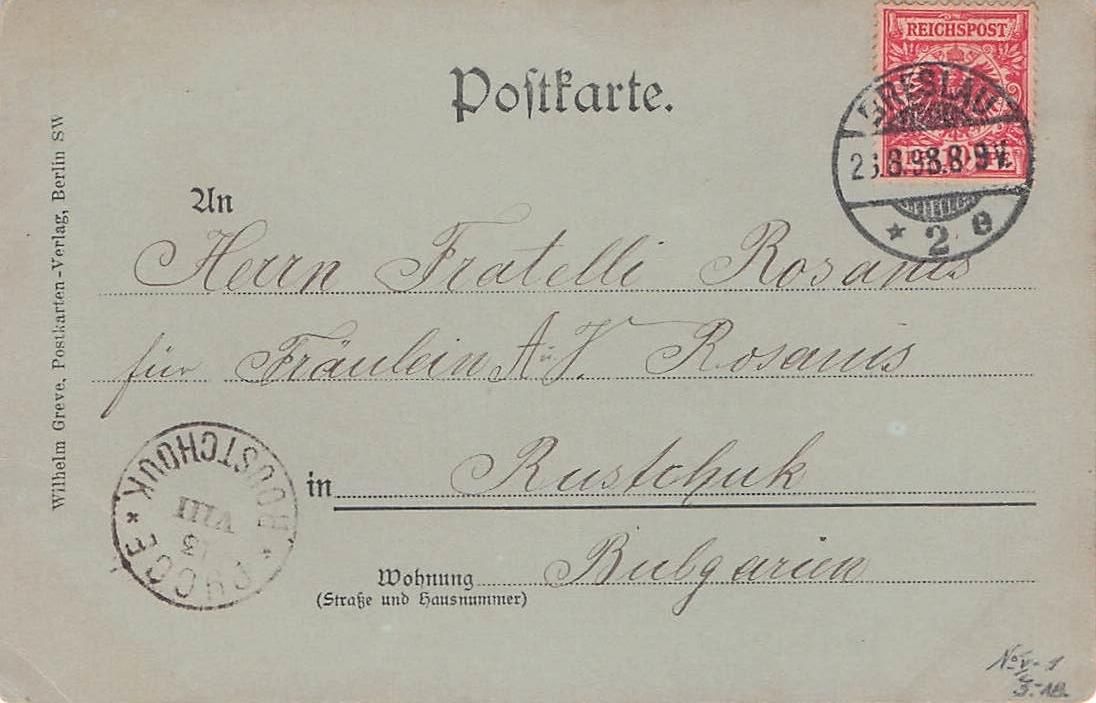 REICHSPOST
Postkarte.
BRESLAU
8.98.8-9V.
* 2 e
An
Herrn Fratelli Rosanis
für Fräulein A. u. V. Rosanis
in Rustchuk
Wohnung Bulgarien
(Straße und Hausnummer)
ROUSTCHOUK
VIII
Wilhelm Greve, Postkarten-Verlag, Berlin SW